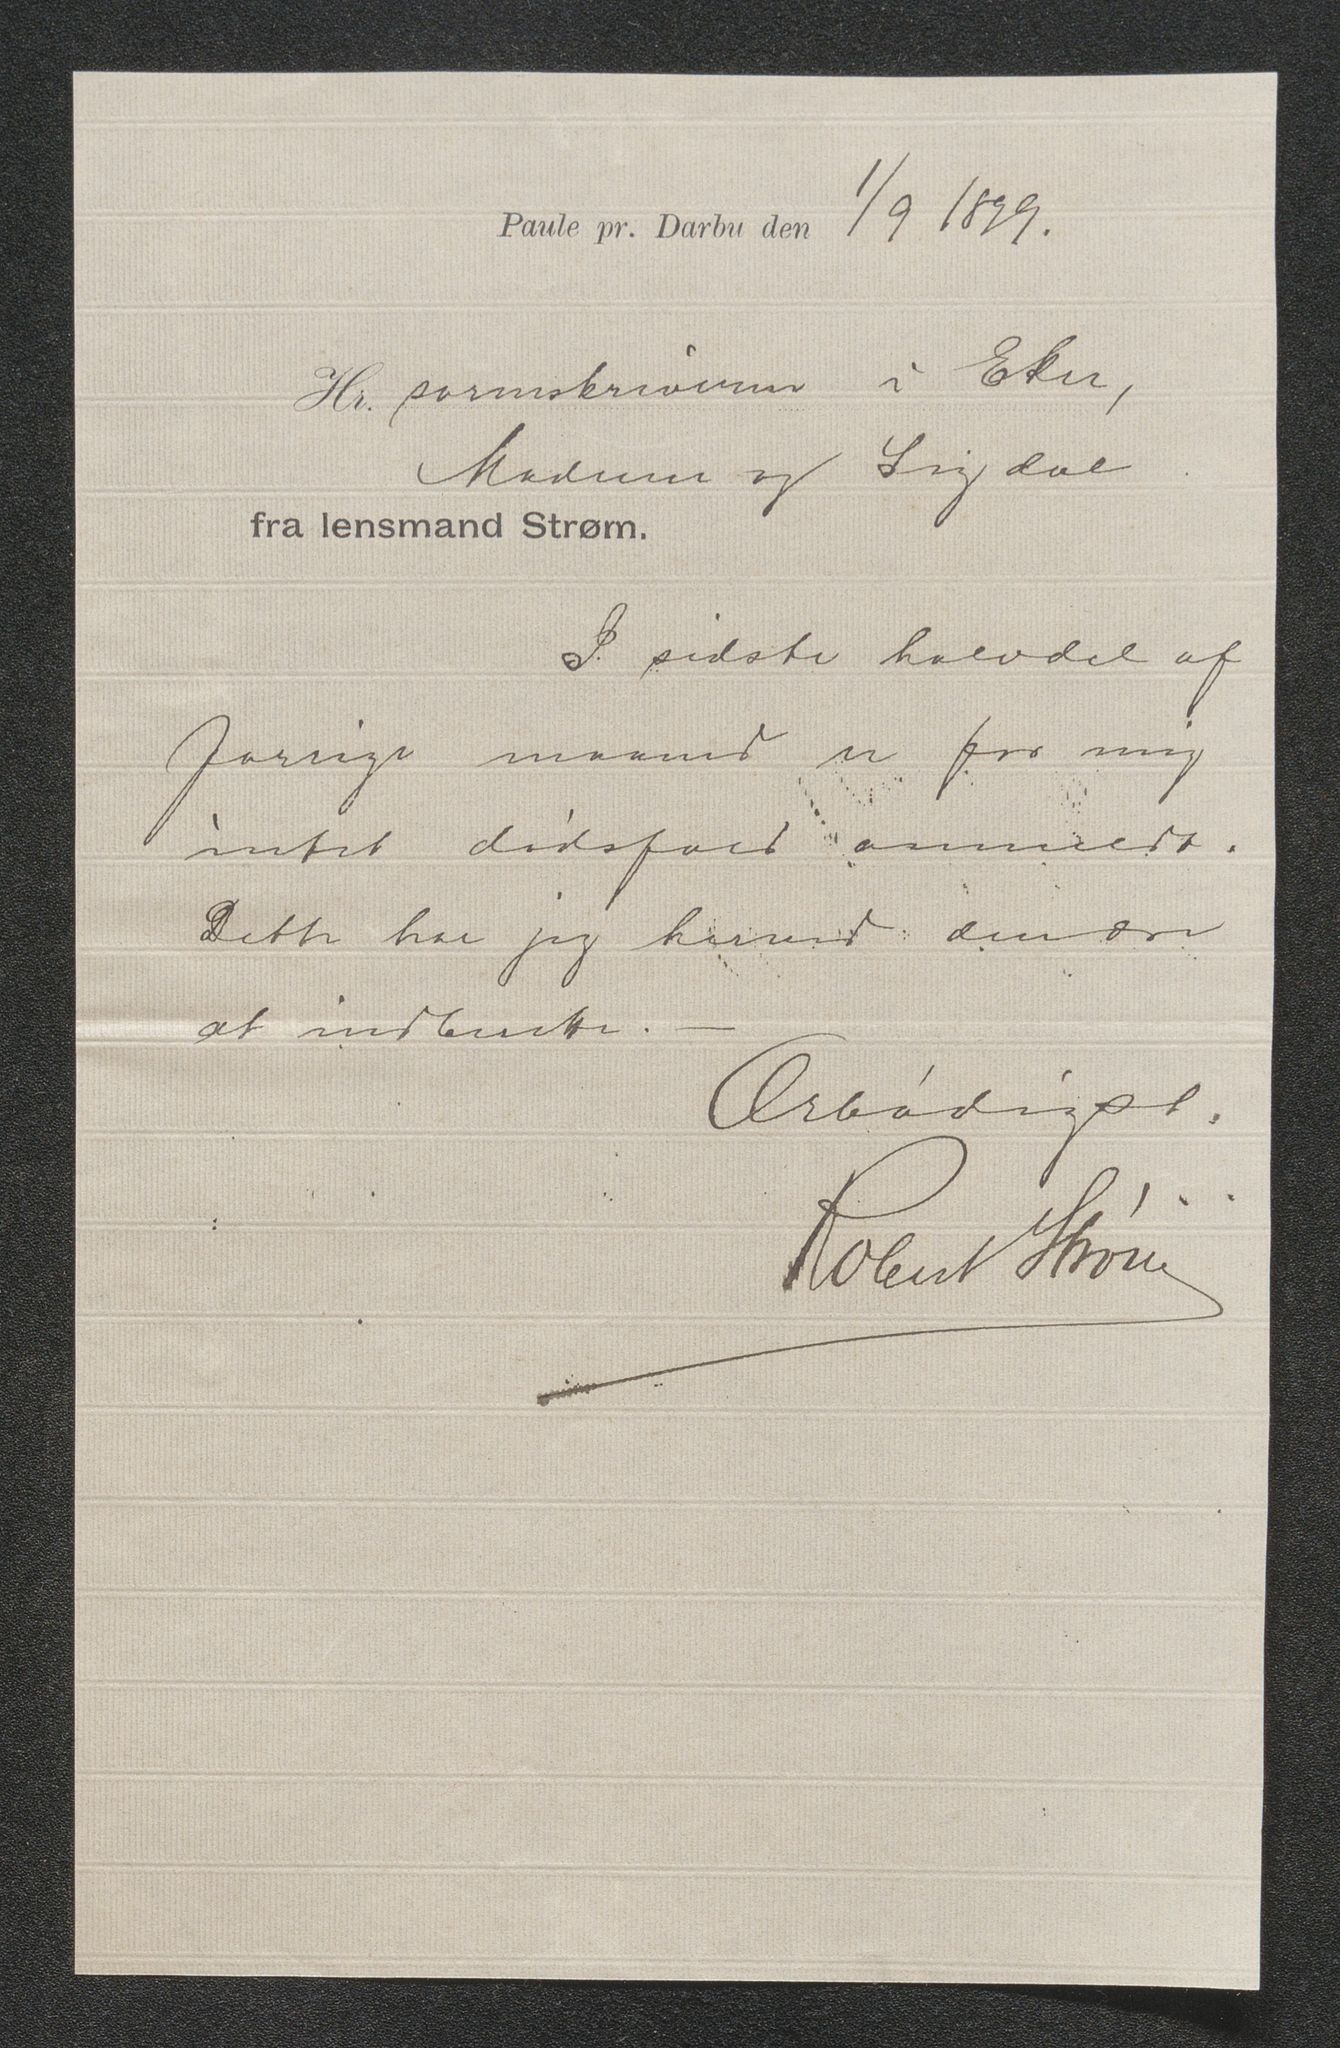 Paule pr. Darbu den 1/9 1899.
Hr. sorenskriveren i Eker,
Modum og Sigdal
fra lensmand Strøm.
I sidste halvdel af
forrige maaned er for mig
intet dødsfald anmeldt.
Dette har jeg herved den ære
at indberette. —
Ærbødigst.
Robert Strøm